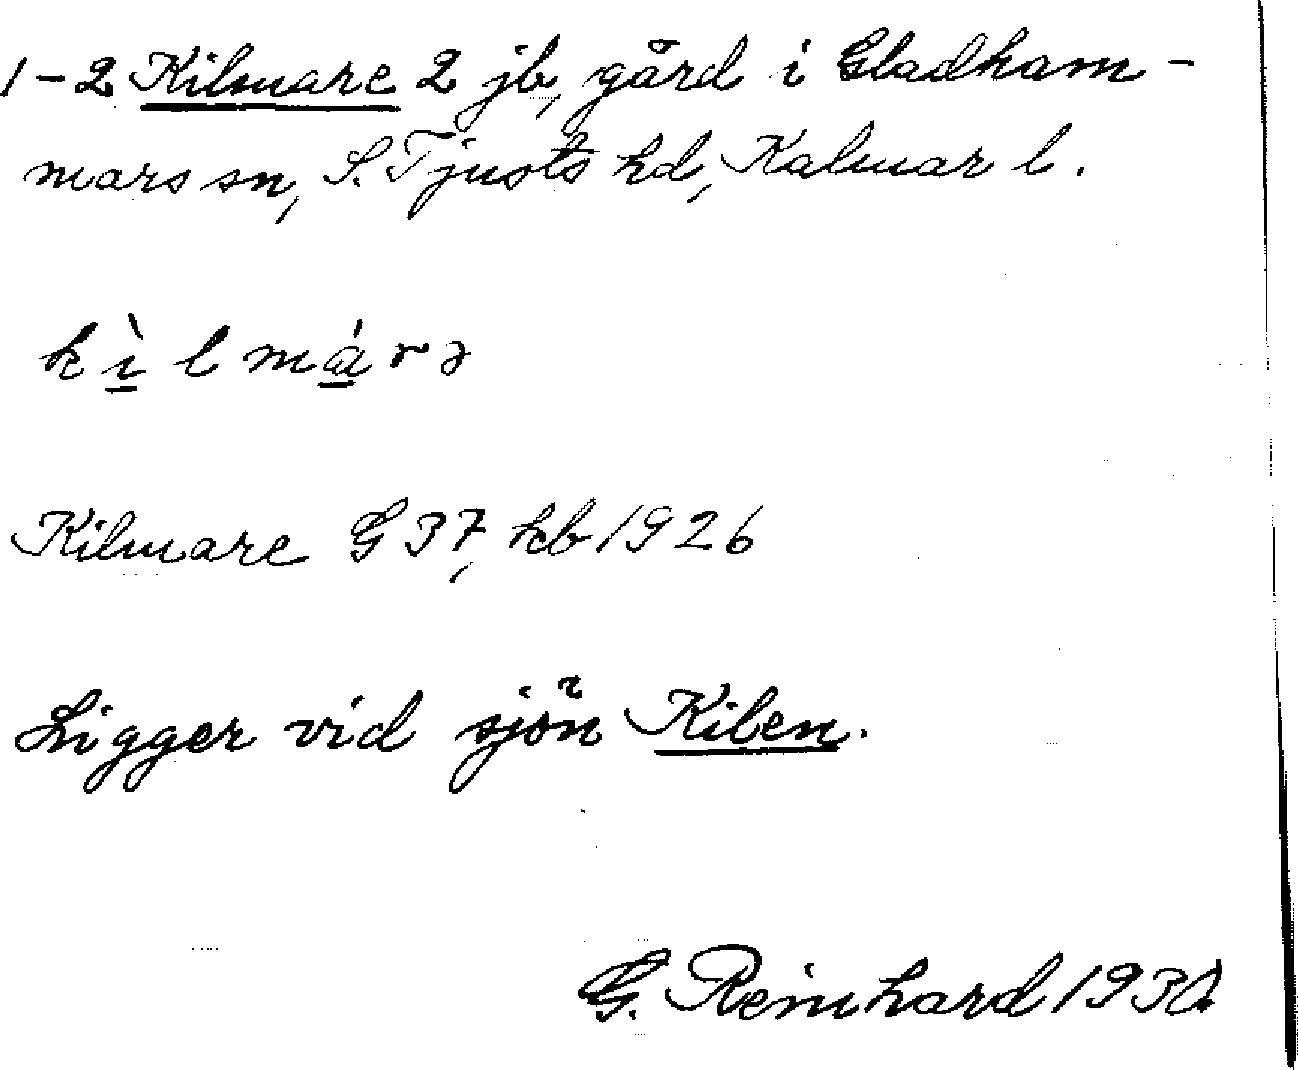 1-2 Kilmare 2 jb, gård i Gladham-
mars sn, S. Tjusts hd, Kalmar l.
kìlmárə
Kilmare G 37, kb 1926
Ligger vid sjön Kilen.
G. Reinhard